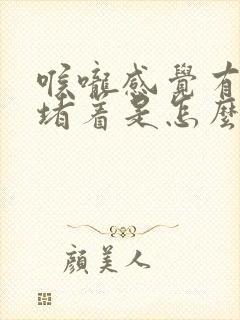 喉嚨感覺有
堵著是怎麼
顏美人